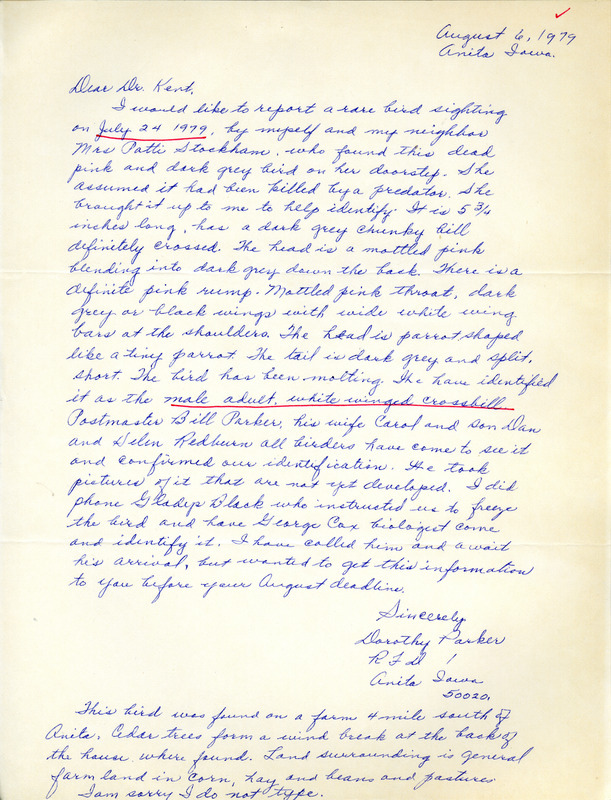 August 6, 1979
Anita Iowa.
Dear Dr. Kent,
I would like to report a rare bird sighting
on July 24 1979, by myself and my neighbor
Mrs Patti Stockham, who found this dead
pink and dark grey bird on her doorstep. She
assumed it had been killed by a predator. She
brought it up to me to help identify. It is 5 3/4
inches long, has a dark grey chunky bill
definitely crossed. The head is a mottled pink
blending into dark grey down the back. There is a
definite pink rump. Mottled pink throat, dark
grey or black wings with wide white wing
bars at the shoulders. The head is parrot shaped
like a tiny parrot. The tail is dark grey and split,
short. The bird has been molting. We have identified
it as the male adult, white winged crossbill.
Postmaster Bill Parker, his wife Carol and son Dan
and Redburn all birders have come to see it
and confirmed our identification. He took
pictures of it that are not yet developed. I did
phone Gladys Black who instructed us to freeze
the bird and have George Cox biologist come
and identify it. I have called him and await
his arrival, but wanted to get this information
to you before your August deadline.
Sincerely
Dorothy Parker
R F D 1
Anita Iowa
50020.
This bird was found on a farm 4 mile south of
Anita, Cedar trees form a wind break at the back of
the house where found. Land surrounding is general
farm land in corn, hay and beans and pastures
I am sorry I do not type.